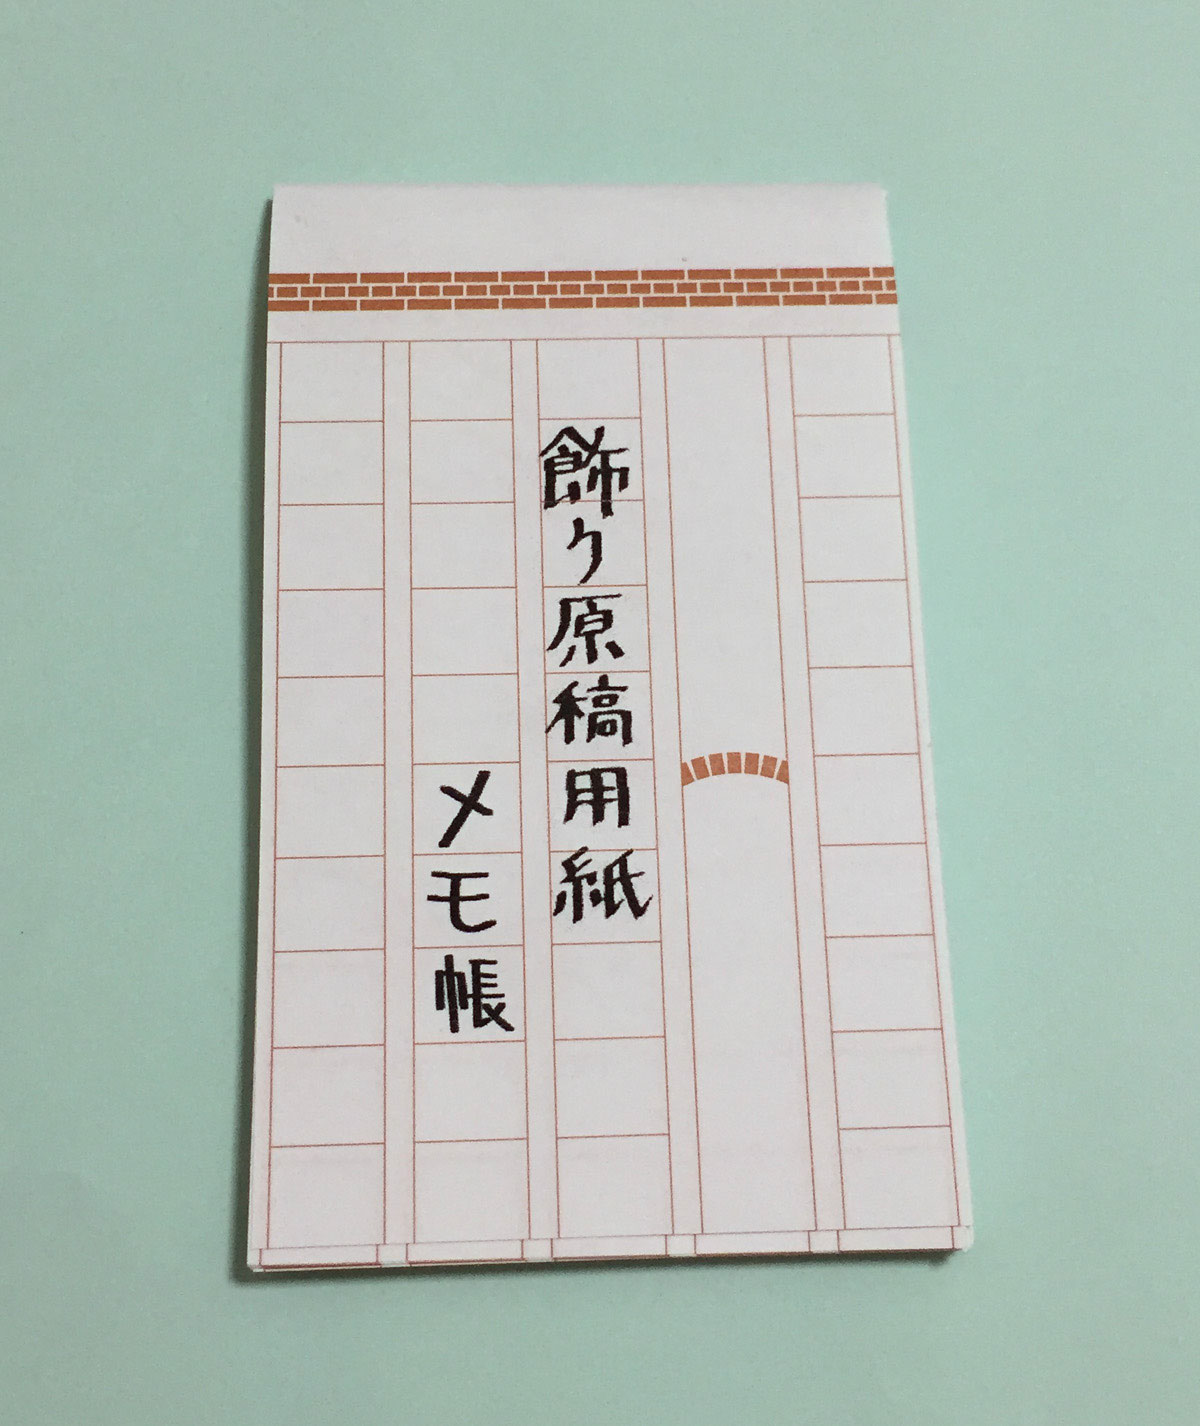 飾り原稿用紙
メモ帳